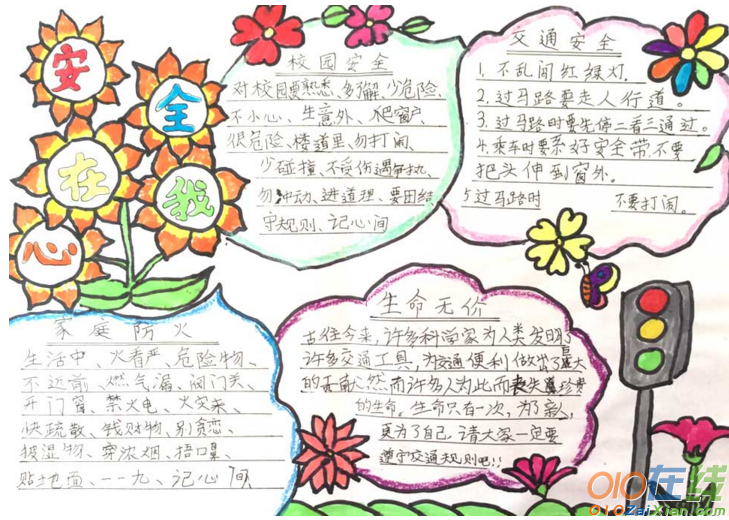 安
全
在
我
心
校园安全
对校园要熟悉、多了解、少危险、
不小心、生意外、爬窗户
很危险、楼道里、勿打闹、
少碰撞、不受伤、遇争执、
勿冲动、进道理、要团结、
守规则、记心间
交通安全
1.不乱闯红绿灯.
2.过马路要走人行道。
3.过马路时要先停二看三通过。
4.乘车时要系好安全带,不要
把头伸到窗外。
5过马路时 不要打闹。
家庭防火
生活中、火看严、危险物、
不近前、燃气漏、阀门关、
开门窗、禁火电、火灾来、
快疏散、钱财物、别贪恋、
披湿物、穿浓烟、捂口鼻、
贴地面、一一九、记心间
生命无价
古往今来,许多科学家为人类发明了
许多交通工具,为交通便利做出了巨大
的贡献然而许多人为此而丧失珍贵
的生命。生命只有一次,为了亲人,
更为了自己,请大家一定要
遵守交通规则吧!!
010在线
010ZaiXian.com